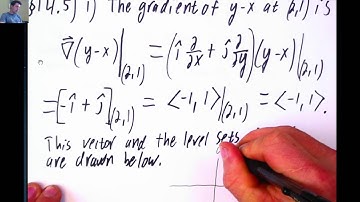 §14.5) 1) The gradient of y-x at (2,1) is
∇⃗(y-x)|(2,1) = (î ∂/∂x + ĵ ∂/∂y)(y-x)|(2,1)
= [-î + ĵ](2,1) = <-1,1>|(2,1) = <-1,1>.
This vector and the level sets
are drawn below.